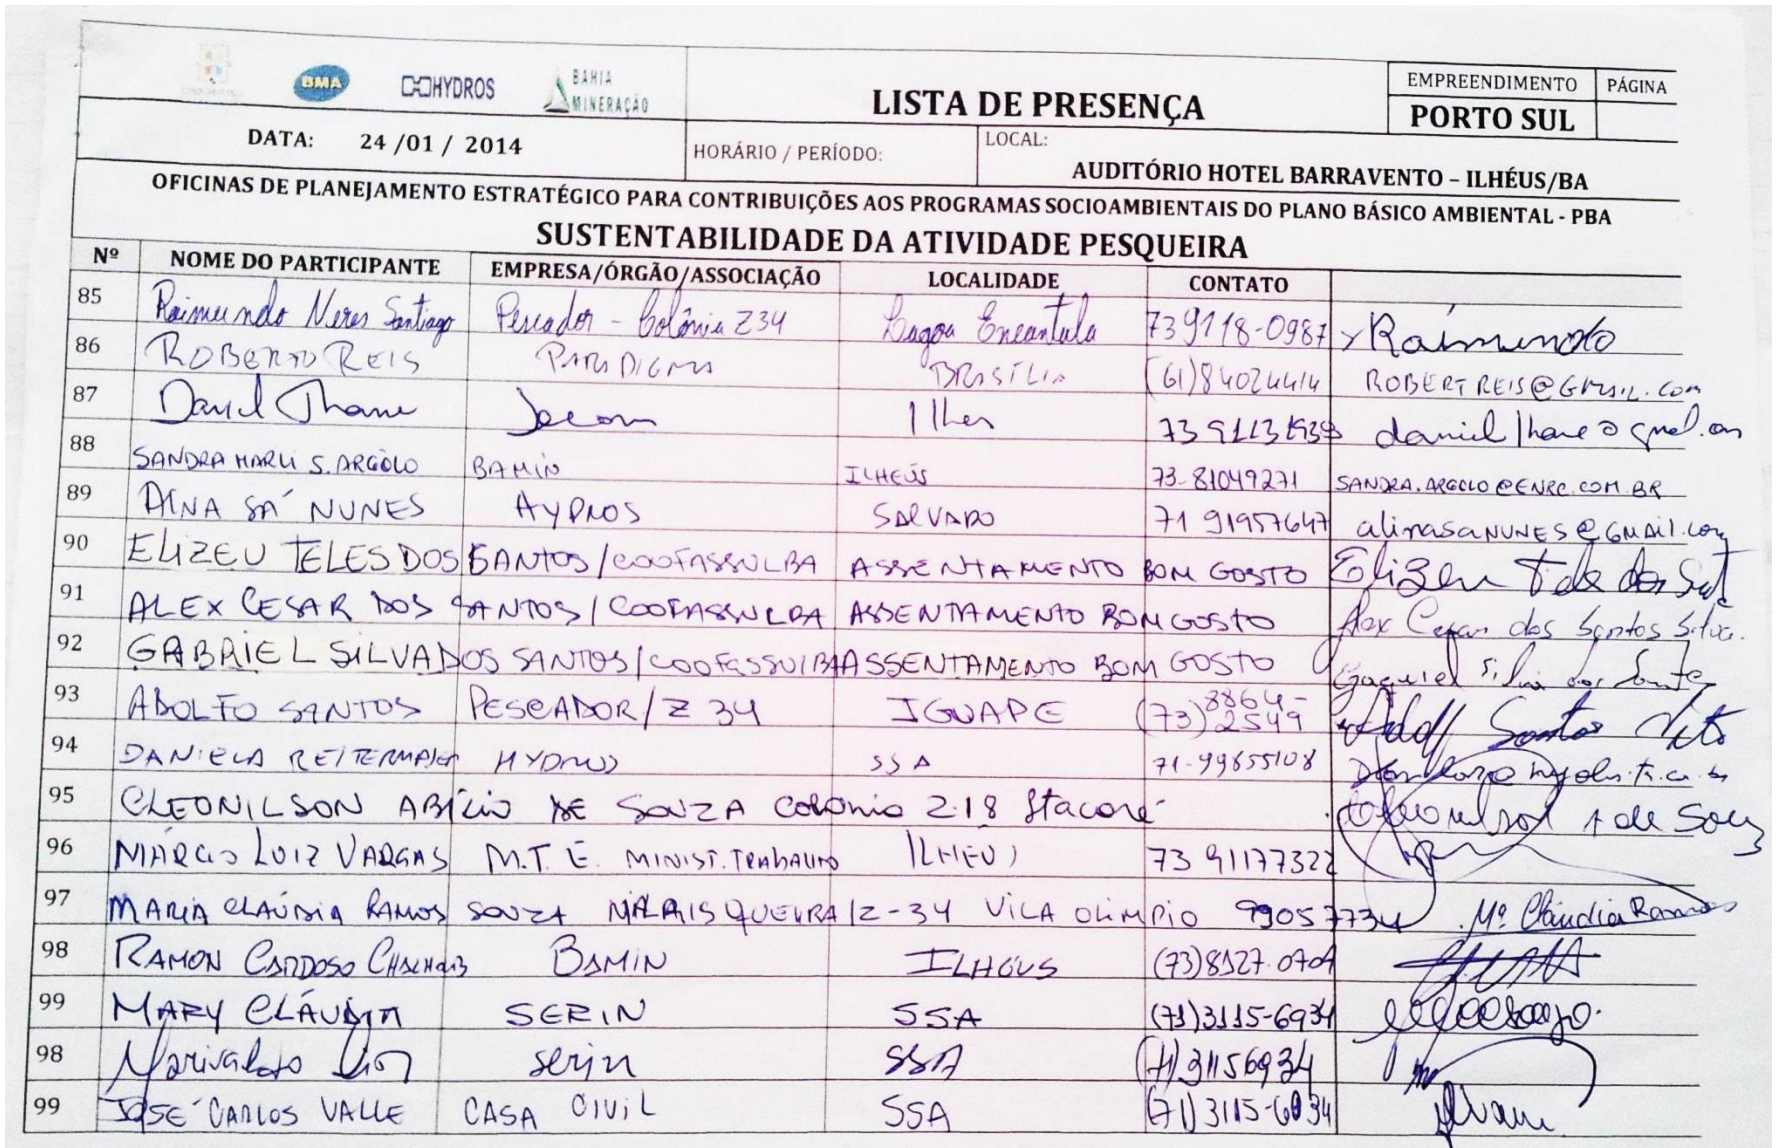 BMA HYDROS BAHIA MINERAÇÃO
LISTA DE PRESENÇA
EMPREENDIMENTO PÁGINA
PORTO SUL
DATA: 24 /01 / 2014 HORÁRIO / PERÍODO: LOCAL:
AUDITÓRIO HOTEL BARRAVENTO – ILHÉUS/BA
OFICINAS DE PLANEJAMENTO ESTRATÉGICO PARA CONTRIBUIÇÕES AOS PROGRAMAS SOCIOAMBIENTAIS DO PLANO BÁSICO AMBIENTAL - PBA
SUSTENTABILIDADE DA ATIVIDADE PESQUEIRA
Nº NOME DO PARTICIPANTE EMPRESA/ÓRGÃO/ASSOCIAÇÃO LOCALIDADE CONTATO
85 Raimundo Neres Santiago Pescador - Colônia Z34 Lagoa Encantada 73 9118-0987 Raimundo
86 ROBERTO REIS PARADIGMA BRASÍLIA (61)84024414 ROBERTREIS@GMAIL.COM
87 Daniel Thame Ilheus
88 SANDRA MARLI S. ARGÔLO BAMIN ILHEÚS 73-81049271 SANDRA.ARGOLO@ENRC.COM.BR
89 SÁ NUNES SALVADO 71 91957647 alinasaNUNES@GMAIL.COM
90 ELIZEU TELES DOS SANTOS / COOFASSULBA ASSENTAMENTO BOM GOSTO Elizeu
91 ALEX CESAR DOS SANTOS / COOFASSULBA ASSENTAMENTO BOM GOSTO Alex Cesar dos Santos Silva.
92 GABRIEL SILVA DOS SANTOS / COOFASSULBA ASSENTAMENTO BOM GOSTO Silva dos
93 ADOLFO SANTOS PESCADOR / Z 34 IGUAPE (73) 8864-2549 Santos
94 DANIELA HYDROS SSA 71-99655108
95 CLEONILSON ABÍLIO DE SOUZA Colônia Z.18 Itacaré
96 MÁRCIO LUIZ VARGAS M.T.E. MINIST. TRABALHO ILHEUS 73 91177322
97 MARIA CLAÚDIA RAMOS SOUZA MARISQUEIRA / Z-34 VILA OLIMPIO 99057734 Mª Cláudia Ramos
98 RAMON CARDOSO BAMIN ILHÉUS (73)8127-0704
99 MARY CLÁUDIA SERIN SSA (71)3115-6934
98 Marivaldo serin SSA (71) 31156934
99 JOSÉ CARLOS VALLE CASA CIVIL SSA (71) 3115-6934